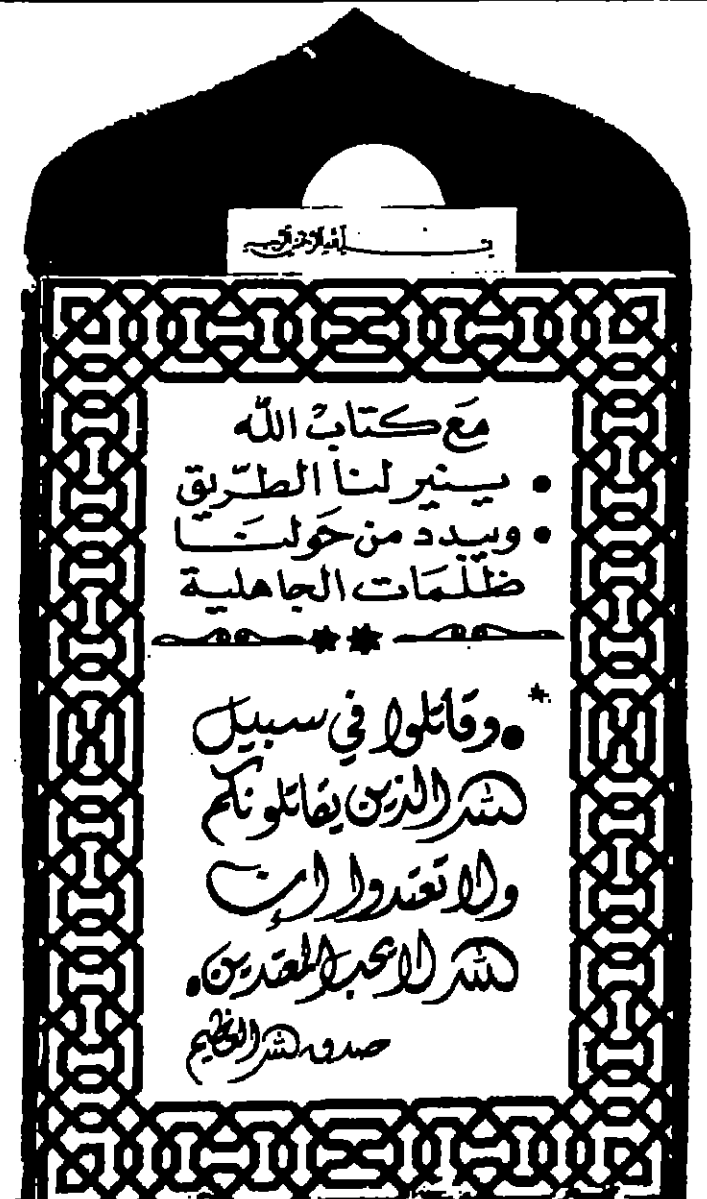 بسم الله الرحمن الرحيم
مَع كتابْ الله
• يـنير لنا الطـرّيق
• ويبدد من حَولنَـا
ظلْـمَات الجاهلية
* • وقاتلوا في سبيل
الله الذين يقاتلونكم
ولا تعتدوا إن
الله لا يحب المعتدين •
صدق الله العظيم